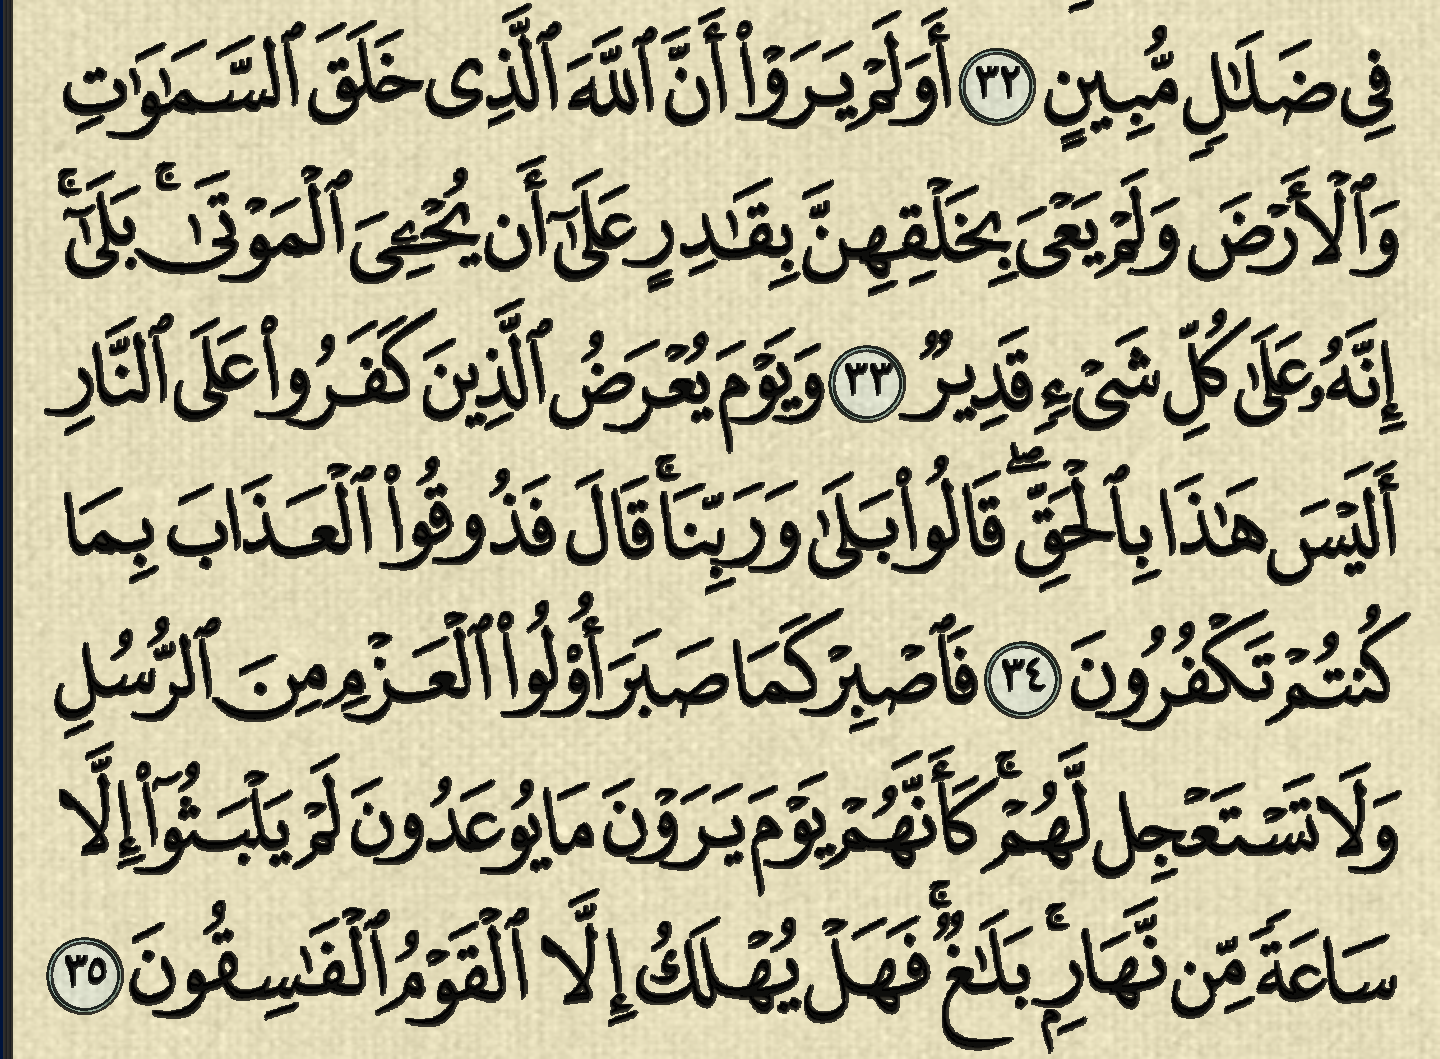 فِى ضَلَـٰلٍ مُّبِينٍ ٣٢ أَوَلَمْ يَرَوْا۟ أَنَّ ٱللَّهَ ٱلَّذِى خَلَقَ ٱلسَّمَـٰوَٰتِ
وَٱلْأَرْضَ وَلَمْ يَعْىَ بِخَلْقِهِنَّ بِقَـٰدِرٍ عَلَىٰٓ أَن يُحْـِۧىَ ٱلْمَوْتَىٰ ۚ بَلَىٰٓ ۚ
إِنَّهُۥ عَلَىٰ كُلِّ شَىْءٍ قَدِيرٌ ٣٣ وَيَوْمَ يُعْرَضُ ٱلَّذِينَ كَفَرُوا۟ عَلَى ٱلنَّارِ
أَلَيْسَ هَـٰذَا بِٱلْحَقِّ ۖ قَالُوا۟ بَلَىٰ وَرَبِّنَا ۚ قَالَ فَذُوقُوا۟ ٱلْعَذَابَ بِمَا
كُنتُمْ تَكْفُرُونَ ٣٤ فَٱصْبِرْ كَمَا صَبَرَ أُو۟لُوا۟ ٱلْعَزْمِ مِنَ ٱلرُّسُلِ
وَلَا تَسْتَعْجِل لَّهُمْ ۚ كَأَنَّهُمْ يَوْمَ يَرَوْنَ مَا يُوعَدُونَ لَمْ يَلْبَثُوٓا۟ إِلَّا
سَاعَةً مِّن نَّهَارٍۭ ۚ بَلَـٰغٌ ۚ فَهَلْ يُهْلَكُ إِلَّا ٱلْقَوْمُ ٱلْفَـٰسِقُونَ ٣٥